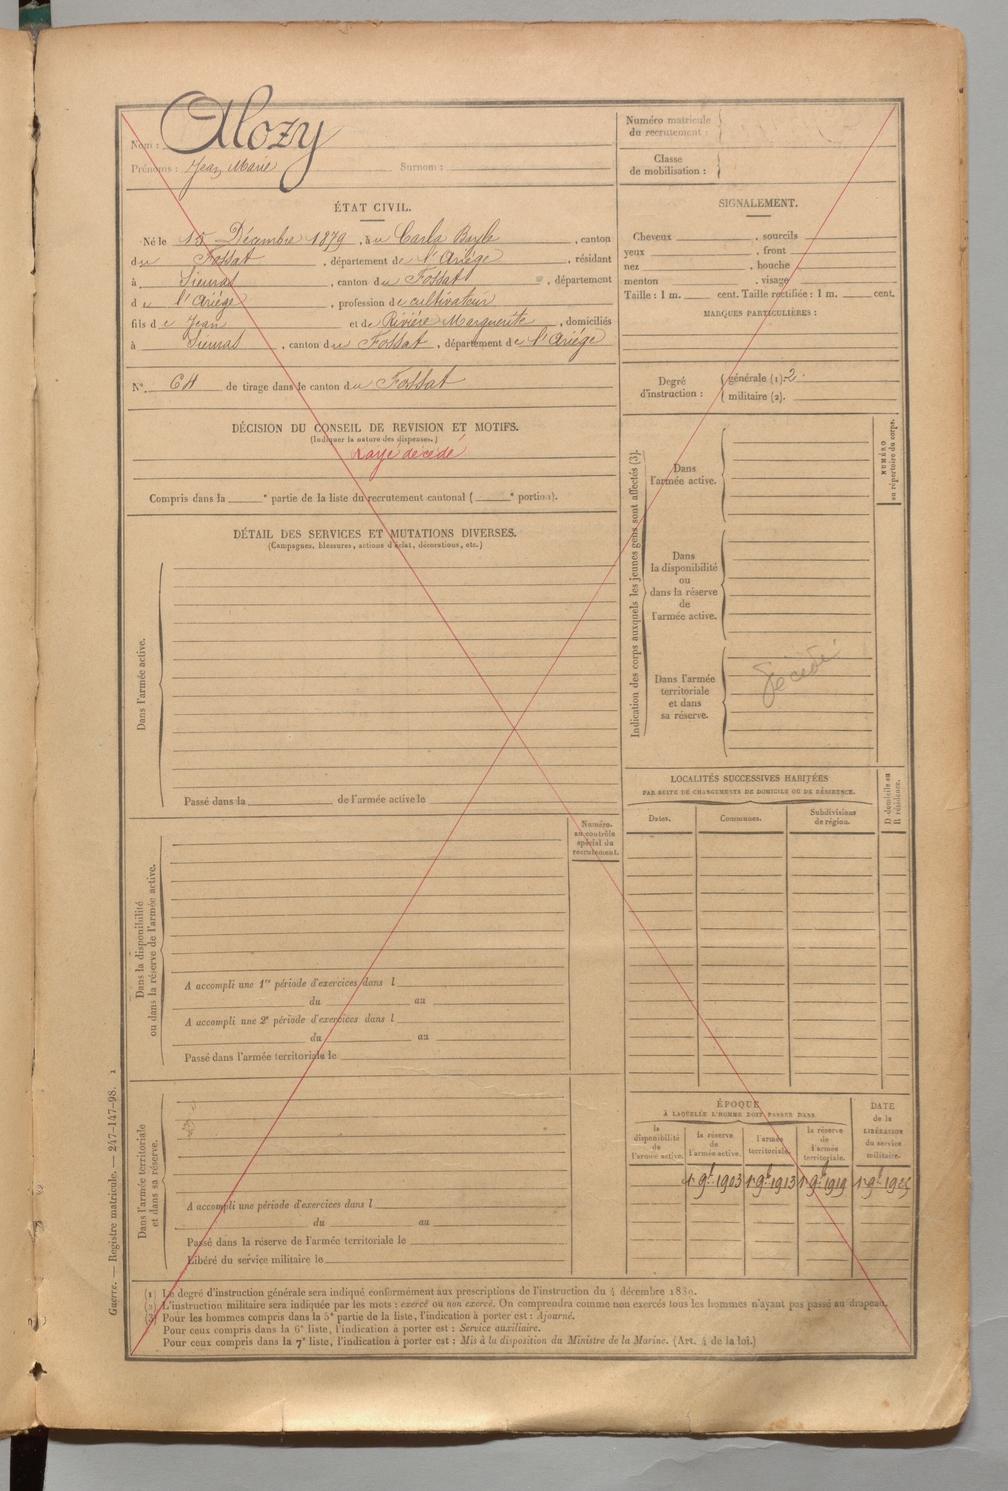 Nom : Alozy
Prénoms : Jean Marie Surnom :
ÉTAT CIVIL.
Né le 15 Décembre 1879, à u Carla Bayle, canton
du Fossat, département de l'Ariège, résidant
à Sieuras, canton du Fossat, département
de l'Ariège, profession de cultivateur
fils de Jean et de Rivière Marguerite, domiciliés
à Sieuras, canton du Fossat, département de l'Ariège
N° 64 de tirage dans le canton du Fossat
DÉCISION DU CONSEIL DE REVISION ET MOTIFS.
(Indiquer la nature des dispenses.)
rayé décédé
Compris dans la e partie de la liste du recrutement cantonal ( e portion).
DÉTAIL DES SERVICES ET MUTATIONS DIVERSES.
(Campagnes, blessures, actions d'éclat, décorations, etc.)
Dans l'armée active.
Passé dans la de l'armée active le
Numéro
au contrôle
spécial du
recrutement.
Dans la disponibilité
ou dans la réserve de l'armée active.
A accompli une 1re période d'exercices dans l
du au
A accompli une 2e période d'exercices dans l
du au
Passé dans l'armée territoriale le
Dans l'armée territoriale
et dans sa réserve.
A accompli une période d'exercices dans l
du au
Passé dans la réserve de l'armée territoriale le
Libéré du service militaire le
Numéro matricule
du recrutement :
Classe
de mobilisation :
SIGNALEMENT.
Cheveux , sourcils
yeux , front
nez , bouche
menton , visage
Taille : 1 m. cent. Taille rectifiée : 1 m. cent.
MARQUES PARTICULIÈRES :
Degré
d'instruction :
générale (1). 2.
militaire (2).
Indication des corps auxquels les jeunes gens sont affectés (3).
NUMÉRO
au répertoire du corps.
Dans
l'armée active.
Dans
la disponibilité
ou
dans la réserve
de
l'armée active.
Dans l'armée
territoriale
et dans
sa réserve.
Décédé
LOCALITÉS SUCCESSIVES HABITÉES
PAR SUITE DE CHANGEMENTS DE DOMICILE OU DE RÉSIDENCE.
D domicile ou
R résidence.
Dates.
Communes.
Subdivisions
de région.
ÉPOQUE
À LAQUELLE L'HOMME DOIT PASSER DANS
DATE
de la
LIBÉRATION
du service
militaire.
la
disponibilité
de
l'armée active.
la réserve
de
l'armée active.
l'armée
territoriale.
la réserve
de
l'armée
territoriale.
1r 9b 1903 1r 9b 1913 1r 9b 1919 1r 9b 1925
(1) Le degré d'instruction générale sera indiqué conformément aux prescriptions de l'instruction du 4 décembre 1889.
(2) L'instruction militaire sera indiquée par les mots : exercé ou non exercé. On comprendra comme non exercés tous les hommes n'ayant pas passé au drapeau.
(3) Pour les hommes compris dans la 5e partie de la liste, l'indication à porter est : Ajourné.
Pour ceux compris dans la 6e liste, l'indication à porter est : Service auxiliaire.
Pour ceux compris dans la 7e liste, l'indication à porter est : Mis à la disposition du Ministre de la Marine. (Art. 4 de la loi.)
Guerre. — Registre matricule. — 247-147-98. 1